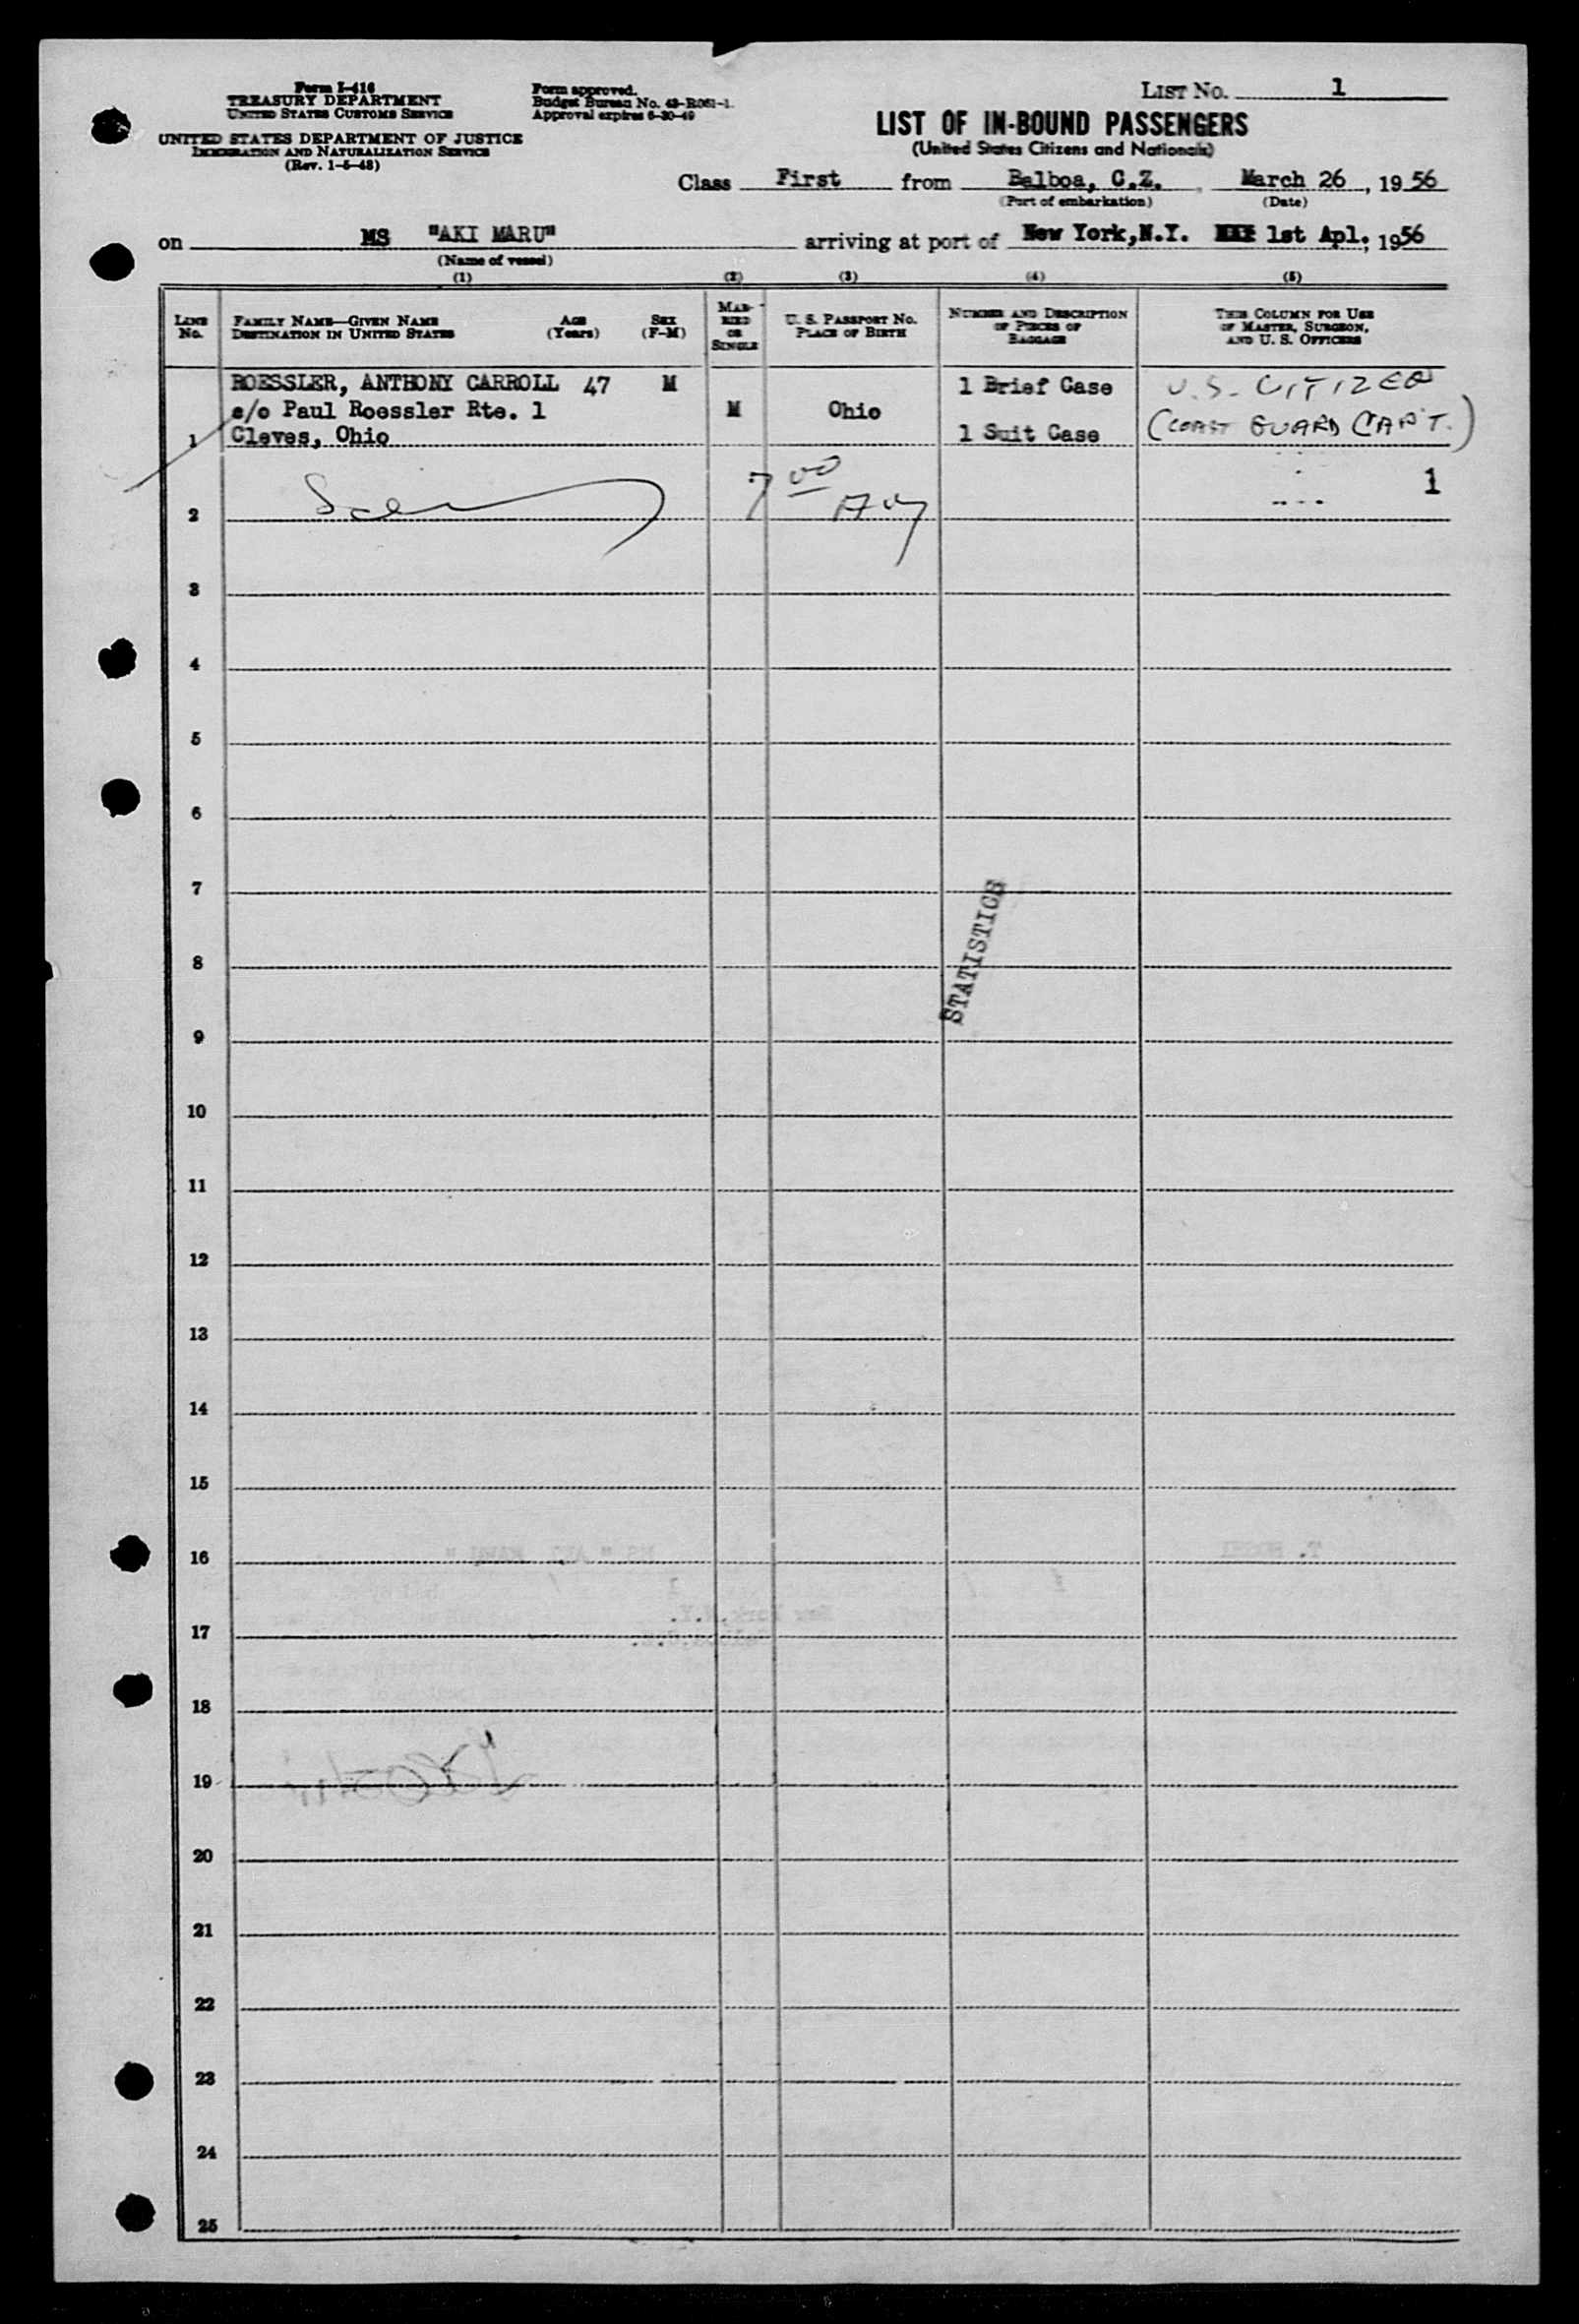 Form I-416
TREASURY DEPARTMENT
UNITED STATES CUSTOMS SERVICE
UNITED STATES DEPARTMENT OF JUSTICE
IMMIGRATION AND NATURALIZATION SERVICE
(Rev. 1-5-48)
Form approved.
Budget Bureau No. 43-R061-1.
Approval expires 6-30-49
LIST No. 1
LIST OF IN-BOUND PASSENGERS
(United States Citizens and Nationals)
Class First from Balboa, C.Z., March 26, 1956
(Port of embarkation) (Date)
on MS "AKI MARU" arriving at port of New York, N.Y. 1st Apl., 1956
(Name of vessel)
(1) (2) (3) (4) (5)
LINE No. FAMILY NAME—GIVEN NAME DESTINATION IN UNITED STATES AGE (Years) SEX (F-M) MARRIED OR SINGLE U. S. PASSPORT No. PLACE OF BIRTH NUMBER AND DESCRIPTION OF PIECES OF BAGGAGE THIS COLUMN FOR USE OF MASTER, SURGEON, AND U. S. OFFICERS
ROESSLER, ANTHONY CARROLL 47 M 1 Brief Case U.S. CITIZEN
c/o Paul Roessler Rte. 1 M Ohio
1 Cleves, Ohio 1 Suit Case (COAST GUARD CAPT.)
7 00 1
2
3
4
5
6
7
STATISTICS
8
9
10
11
12
13
14
15
16
17
18
19
20
21
22
23
24
25